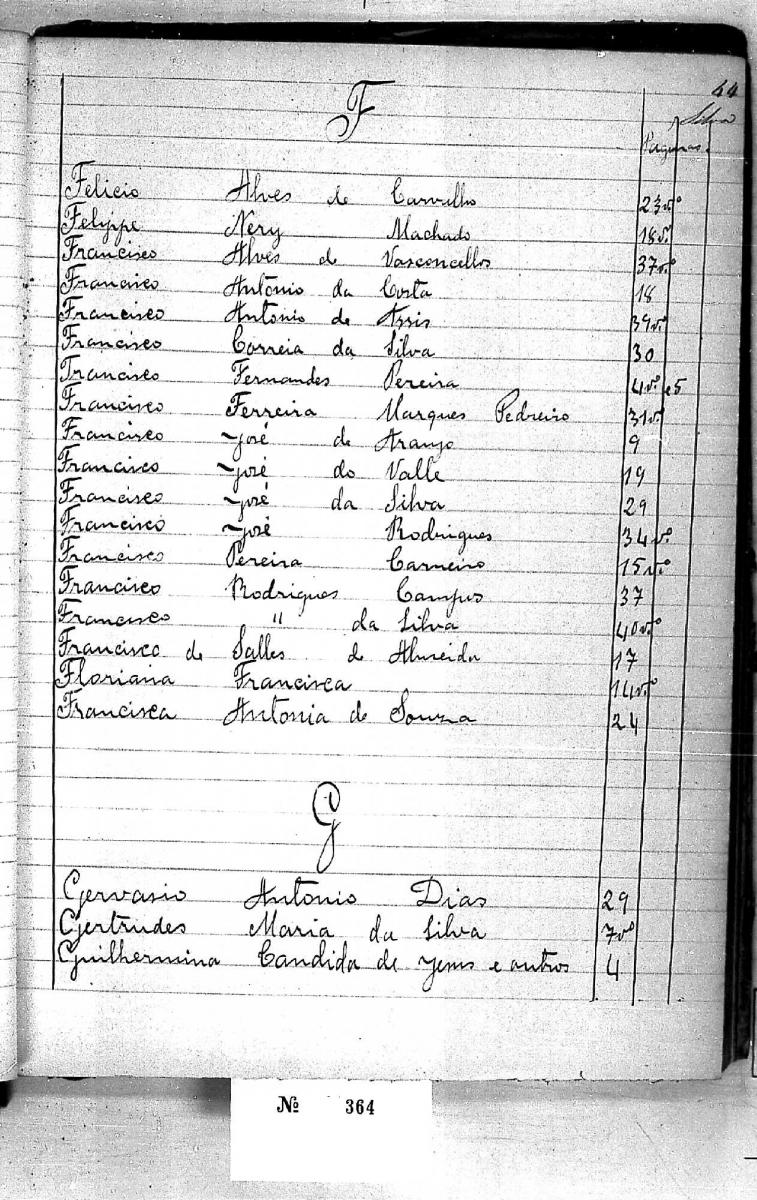 44
Silva
F
Paginas.
Felicio Alves de Carvalho 23vº
Felippe Nery Machado 18vº
Francisco Alves de Vasconcellos 37vº
Francisco Antonio da Costa 18
Francisco Antonio de Assis 39vº
Francisco Correia da Silva 30
Francisco Fernandes Pereira 4vº e 5
Francisco Ferreira Marques Pedreiro 31vº
Francisco José de Araujo 9
Francisco José do Valle 19
Francisco José da Silva 29
Francisco José Rodrigues 34vº
Francisco Pereira Carneiro 15vº
Francisco Rodrigues Campos 37
Francisco " da Silva 40vº
Francisco de Salles de Almeida 17
Floriana Francisca 14vº
Francisca Antonia de Souza 24
G
Gervasio Antonio Dias 29
Gertrudes Maria da Silva 7vº
Guilhermina Candida de Jesus e outros 4
Nº 364